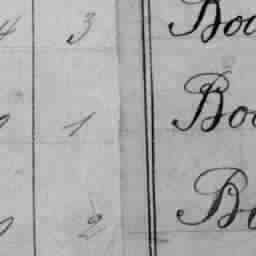 4 3 Boo
1 Boo
2 Bo